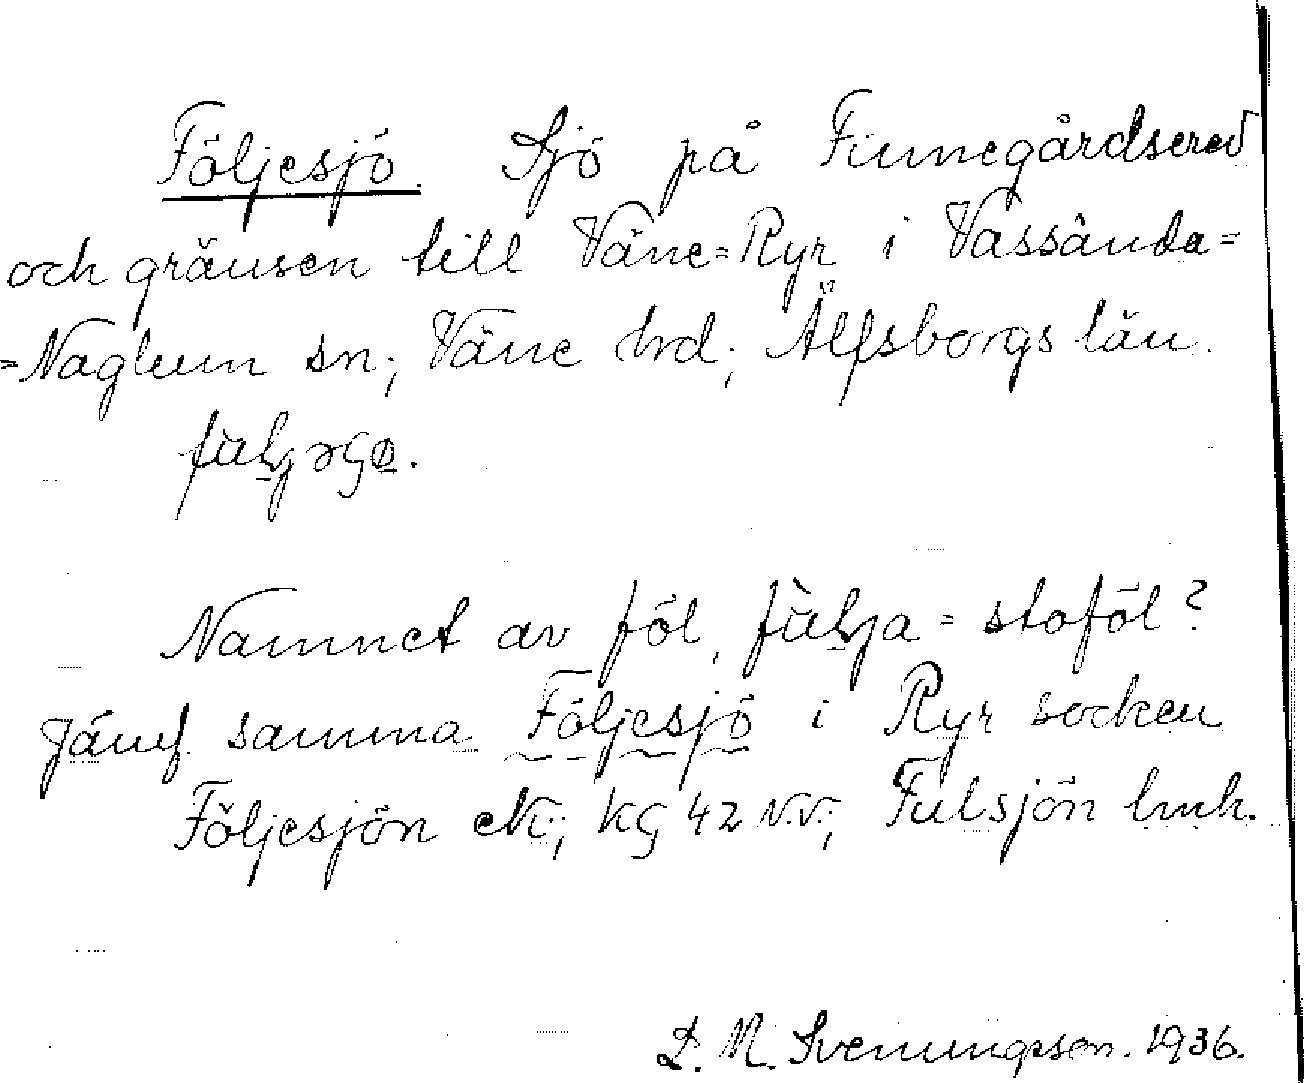 Följesjö. Sjö på Finnegårdsered
och gränsen till Väne=Ryr i Vassända=
=Naglum sn; Väne hrd; Älfsborgs län.
Namnet av föl, = stoföl?
Jämf. samma Följesjö i Ryr socken
Följesjön 42 N.V.; Fulsjön lmk.
D. M. Svenungsson. 1936.